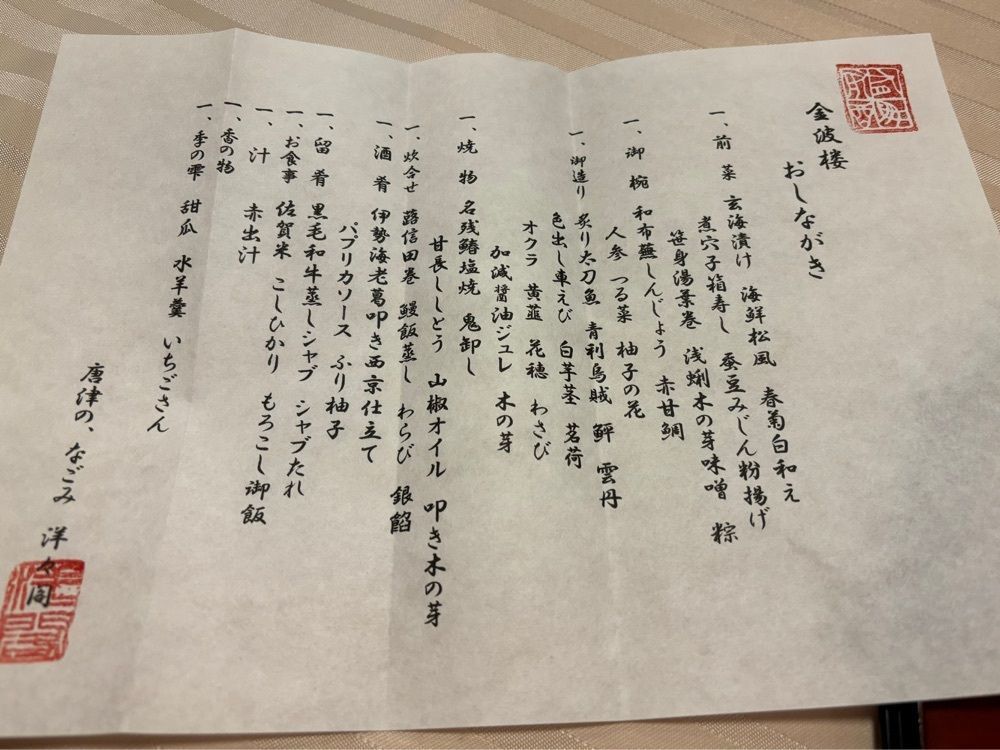 金波楼
おしながき
一、前菜 玄海漬け 海鮮松風 春菊白和え
煮穴子箱寿し 蚕豆みじん粉揚げ
笹身湯葉巻 浅蜊木の芽味噌 粽
一、御椀 和布蕪しんじょう 赤甘鯛
人参 つる菜 柚子の花
一、御造り 炙り太刀魚 青利烏賊 鮃 雲丹
色出し車えび 白芋茎 茗荷
オクラ 黄韮 花穂 わさび
加減醤油ジュレ 木の芽
一、焼物 名残鰆塩焼 鬼卸し
甘長ししとう 山椒オイル 叩き木の芽
一、炊合せ 蕗信田巻 鰻飯蒸し わらび 銀餡
一、酒肴 伊勢海老葛叩き西京仕立て
パプリカソース ふり柚子
一、留肴 黒毛和牛蒸しシャブ シャブたれ
一、お食事 佐賀米 こしひかり もろこし御飯
一、汁 赤出汁
一、香の物
一、季の雫 甜瓜 水羊羹 いちごさん
唐津の、なごみ 洋々閣